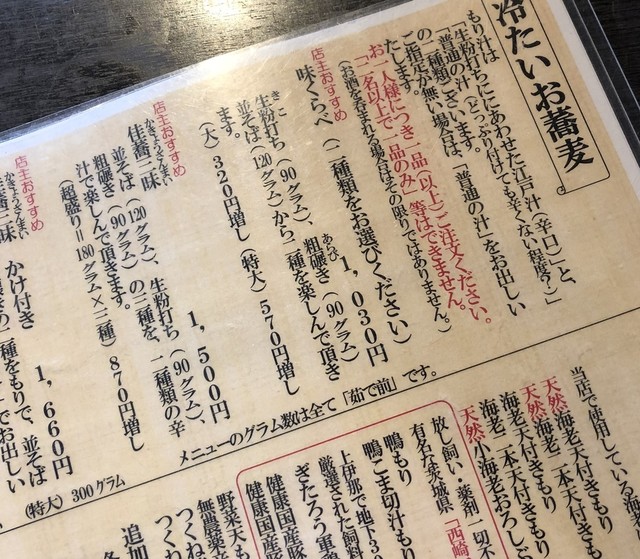 冷たいお蕎麦
もり汁は
「生粉打ちにあわせた江戸汁（辛口）」と、
「普通の汁（どっぷり付けても辛くない程度？）」
の二種類ございます。
ご指定が無い場合は、「普通の汁」をお出しい
たします。
お一人様につき一品（以上）ご注文ください。
「二名以上で一品のみ」等はできません。
（お酒を呑まれる場合はその限りではありません。）
店主おすすめ
味くらべ（二種類をお選びください）
1,030円
きこ あらび
生粉打ち（90グラム）、粗碾き（90グラム）
並そば（120グラム）から二種を楽しんで頂き
ます。
（大）320円増し（特大）570円増し
店主おすすめ
佳蕎三昧
1,500円
並そば（120グラム）、生粉打ち（90グラム）、
粗碾き（90グラム）の三種を、二種類の辛
汁で楽しんで頂きます。
（超盛り＝180グラム×三種）870円増し
店主おすすめ
佳蕎三昧 かけ付き
1,660円
二種をもりで、並そば
（特大）300グラム
メニューのグラム数は全て「茹で前」です。
当店で使用している海
天然海老一本天付きもり
天然海老二本天付きもり
海老二本天付きもり
天然小海老おろし
放し飼い・薬剤一切
有名な茨城県「西崎
鴨もり
鴨こま切汁もり
上伊那で地下
厳選された飼料
ぎたろう軍
健康国産豚
健康国産
野菜天も
無農薬
つくね
つくね
追加